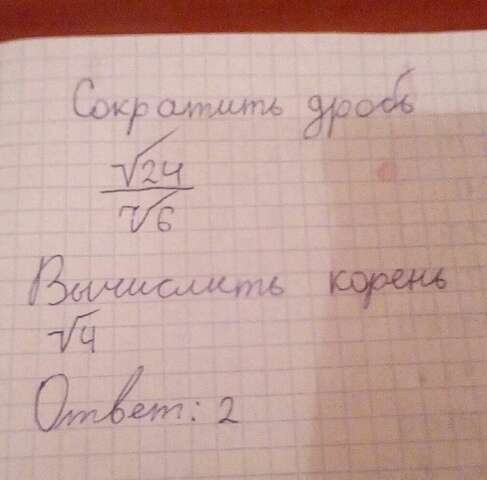 Сократить дробь
√24
√6
Вычислить корень
√4
Ответ: 2